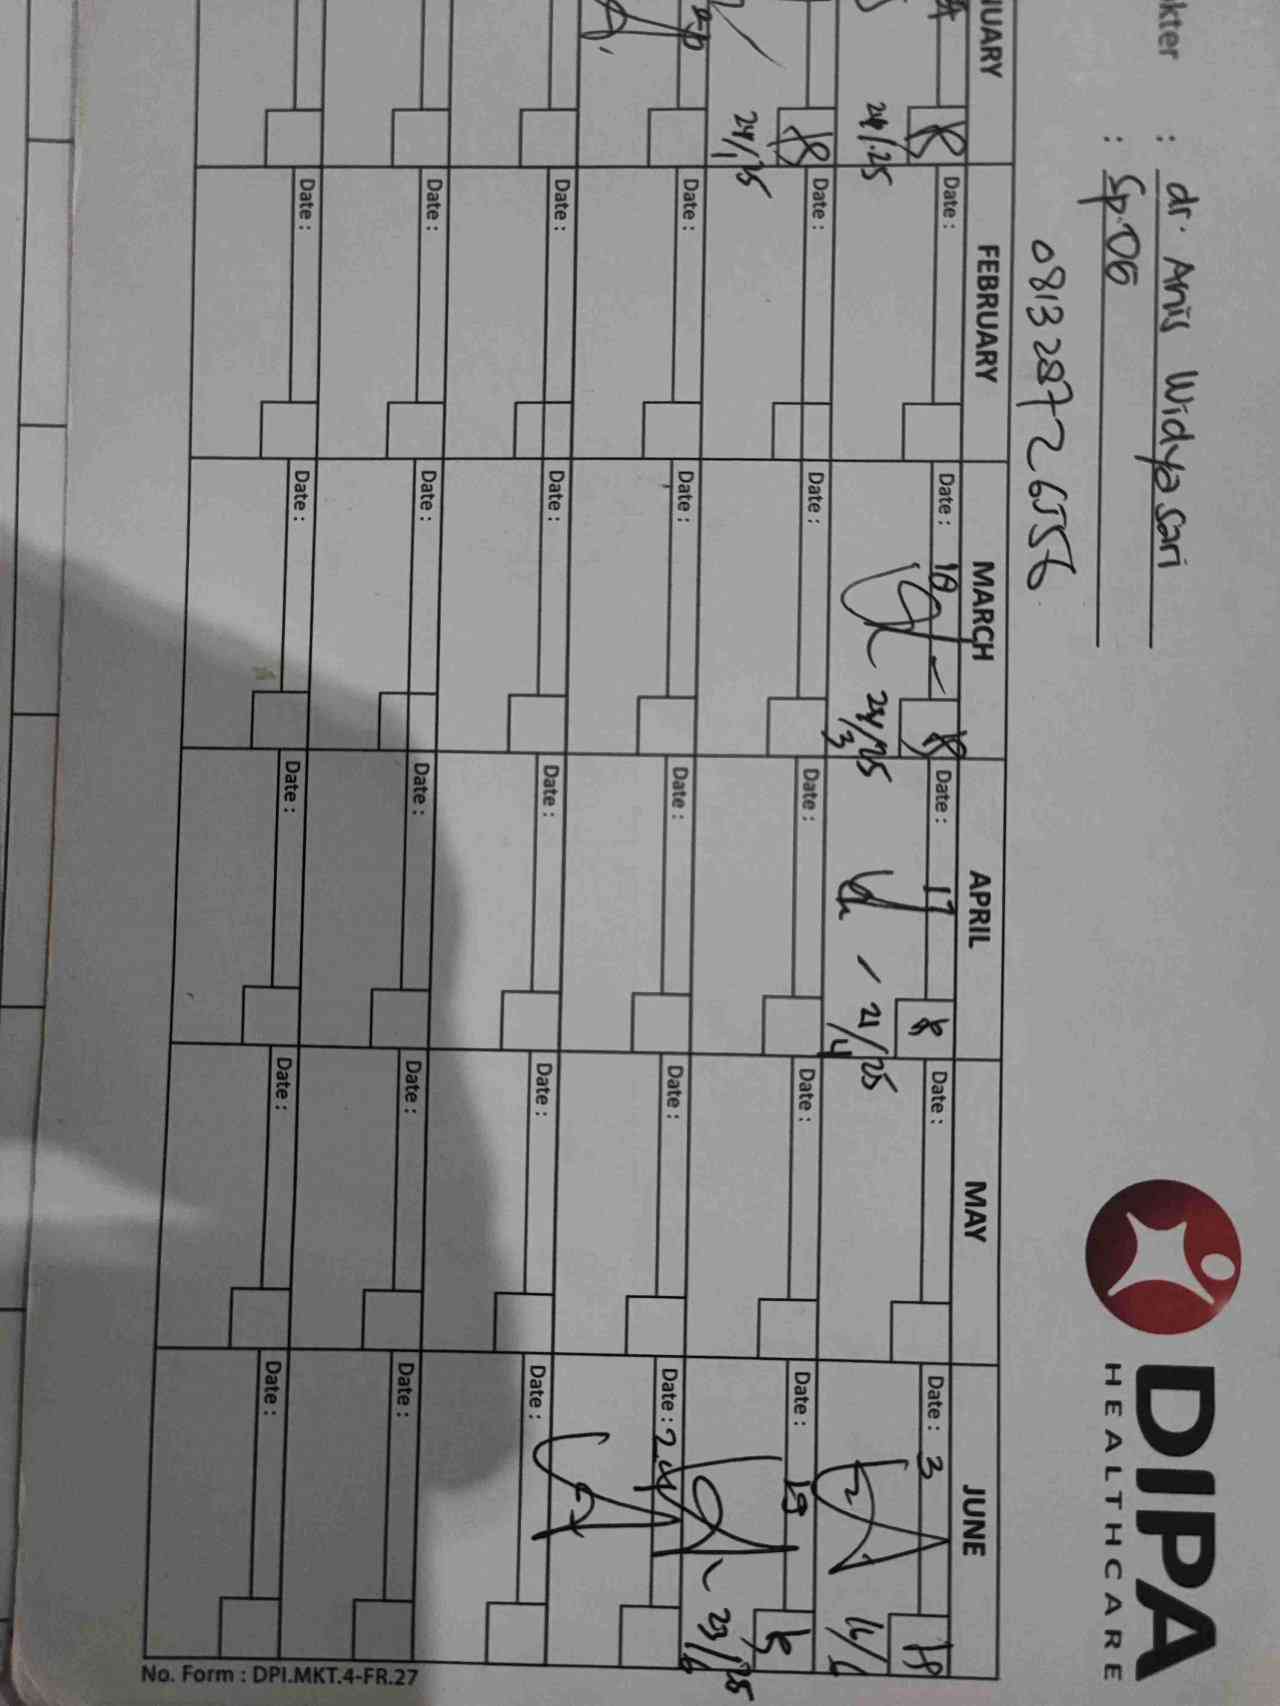 DIPA
HEALTHCARE
kter : dr. Anis Widyasari
: Sp.OG
081328726556
NUARY FEBRUARY MARCH APRIL MAY JUNE
Date : Date : 18 Date : 17 Date : Date : 3
24/1.25 24/3/25 21/4/25 16/6
Date : Date : Date : Date : Date : 19
24/1/25 23/6/25
Date : Date : Date : Date : Date : 24
Date : Date : Date : Date : Date :
Date : Date : Date : Date : Date :
Date : Date : Date : Date : Date :
No. Form : DPI.MKT.4-FR.27